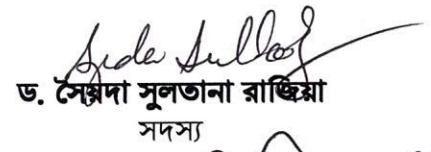 ড. সৈয়দা সুলতানা রাজিয়া
সদস্য